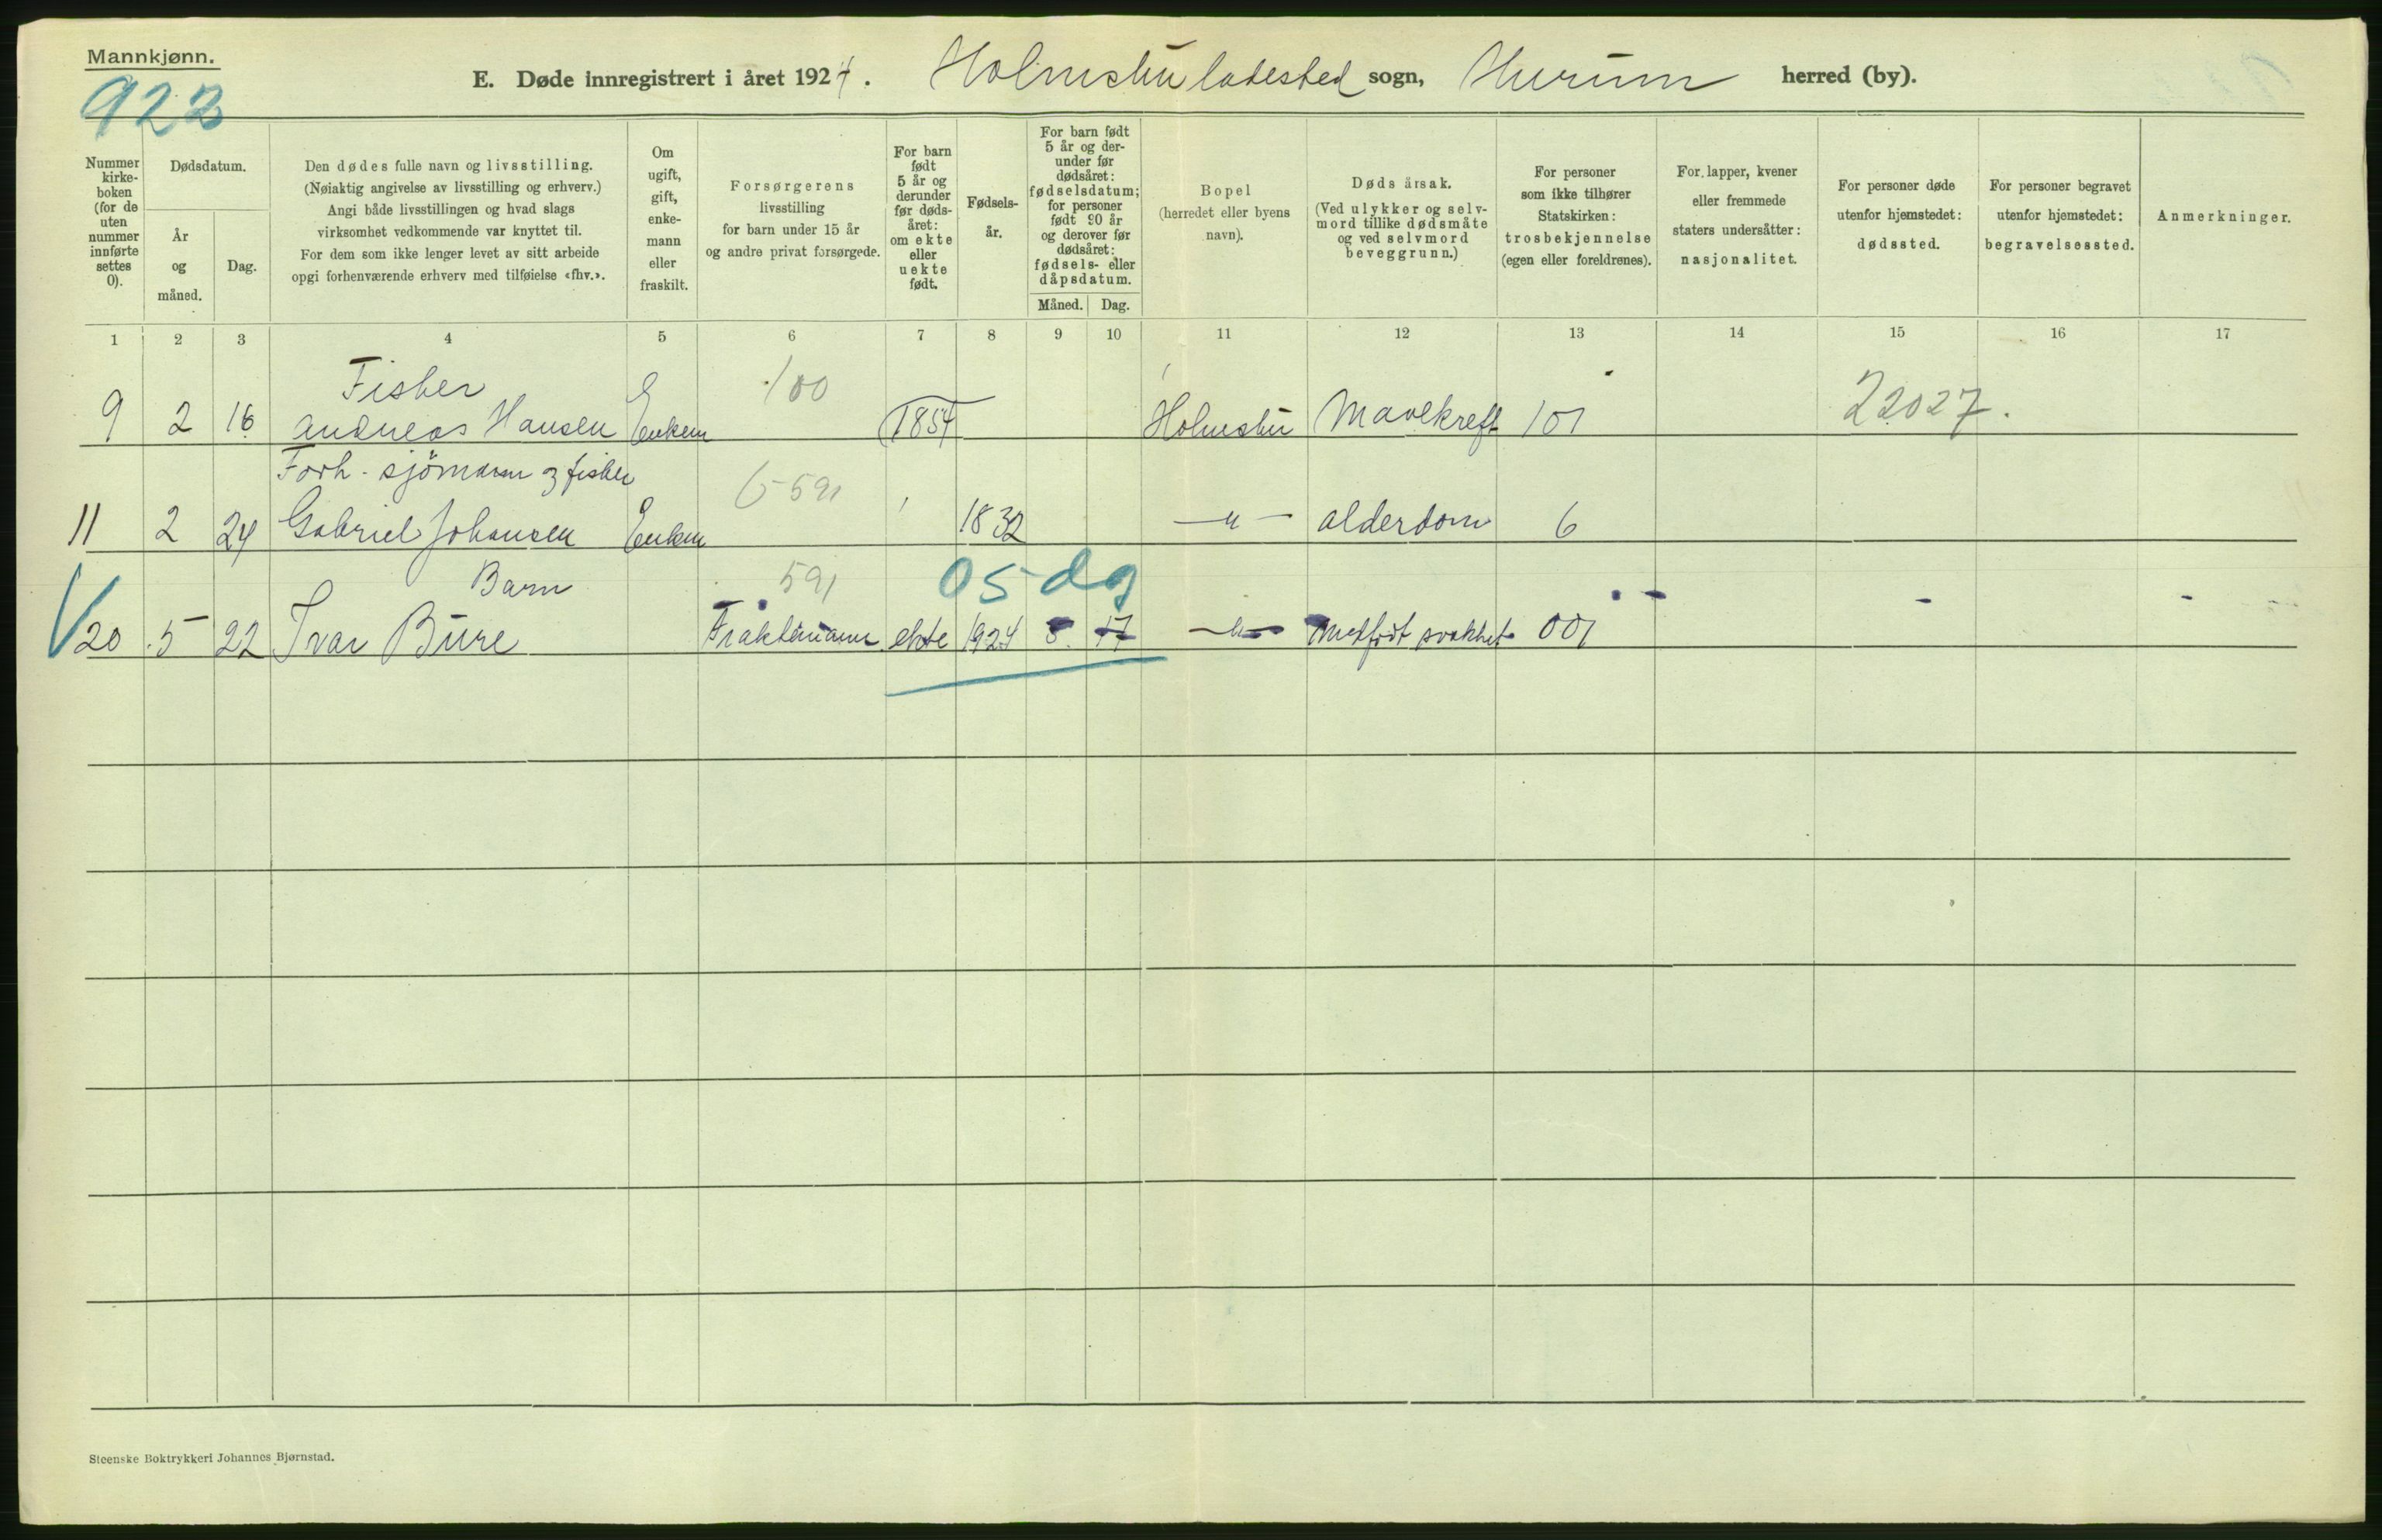 Mannkjønn.
922
E. Døde innregistrert i året 1924. Holmsbu ladested sogn, Hurum herred (by).
Nummer kirke- boken (for de uten nummer innførte settes 0).
Dødsdatum.
År og måned.
Dag.
Den dødes fulle navn og livsstilling.
(Nøiaktig angivelse av livsstilling og erhverv.)
Angi både livsstillingen og hvad slags
virksomhet vedkommende var knyttet til.
For dem som ikke lenger levet av sitt arbeide
opgi forhenværende erhverv med tilføielse «fhv.».
Om ugift, gift, enke- mann eller fraskilt.
Forsørgerens
livsstilling
for barn under 15 år
og andre privat forsørgede.
For barn født 5 år og derunder før døds- året: om ekte eller uekte født.
Fødsels- år.
For barn født 5 år og der- under før dødsåret: fødselsdatum; for personer født 90 år og derover før dødsåret: fødsels- eller dåpsdatum.
Måned. Dag.
Bopel
(herredet eller byens
navn).
Dødsårsak.
(Ved ulykker og selv-
mord tillike dødsmåte
og ved selvmord
beveggrunn.)
For personer
som ikke tilhører
Statskirken:
trosbekjennelse
(egen eller foreldrenes).
For lapper, kvener
eller fremmede
staters undersåtter:
nasjonalitet.
For personer døde
utenfor hjemstedet:
dødssted.
For personer begravet
utenfor hjemstedet:
begravelsessted.
Anmerkninger.
1 2 3 4 5 6 7 8 9 10 11 12 13 14 15 16 17
Fisker 100
9 2 16 Andreas Hansen Enkem 1854 Holmsbu Mavekreft 101 22027.
Forh. sjömann og fisker 6-591
11 2 24 Gabriel Johansen Enkem 1832 -"- Alderdom 6
Barn 591 05 dg
20 5 22 Ivar Bure Fraktemann ekte 1924 5. 17 -"- Medfødt svakhet 001
Steenske Boktrykkeri Johannes Bjørnstad.